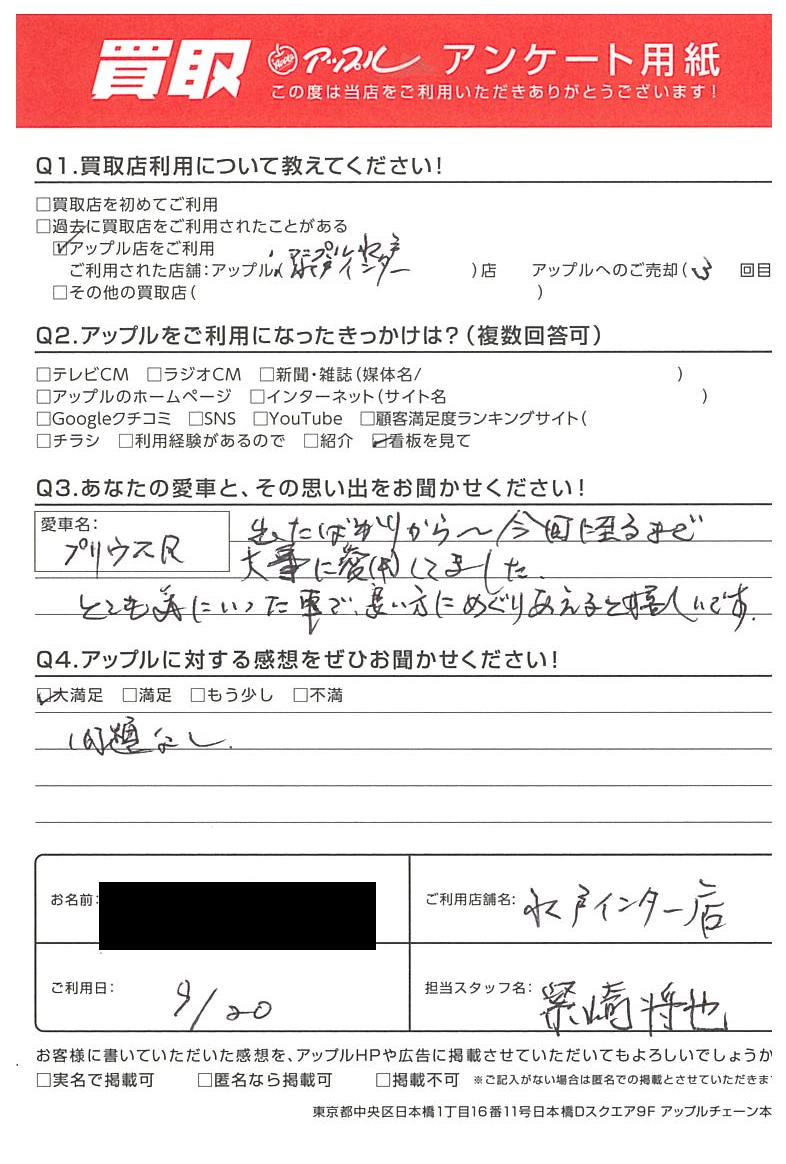 買取 アップル アンケート用紙
この度は当店をご利用いただきありがとうございます!
Q1.買取店利用について教えてください!
□買取店を初めてご利用
□過去に買取店をご利用されたことがある
☑アップル店をご利用
ご利用された店舗:アップル( 水戸インター )店 アップルへのご売却( 3 回目
□その他の買取店( )
Q2.アップルをご利用になったきっかけは?(複数回答可)
□テレビCM □ラジオCM □新聞・雑誌(媒体名/ )
□アップルのホームページ □インターネット(サイト名 )
□Googleクチコミ □SNS □YouTube □顧客満足度ランキングサイト(
□チラシ □利用経験があるので □紹介 ☑看板を見て
Q3.あなたの愛車と、その思い出をお聞かせください!
愛車名:
プリウスR
出たばかりから〜今回に至るまで
大事に愛用してました.
とても気にいった車で、良い方にめぐりあえると嬉しいです.
Q4.アップルに対する感想をぜひお聞かせください!
☑大満足 □満足 □もう少し □不満
問題なし.
お名前:
ご利用店舗名: 水戸インター店
ご利用日: 9/20
担当スタッフ名: 将也
お客様に書いていただいた感想を、アップルHPや広告に掲載させていただいてもよろしいでしょうか
□実名で掲載可 □匿名なら掲載可 □掲載不可 ※ご記入がない場合は匿名での掲載とさせていただきま
東京都中央区日本橋1丁目16番11号日本橋Dスクエア9F アップルチェーン本